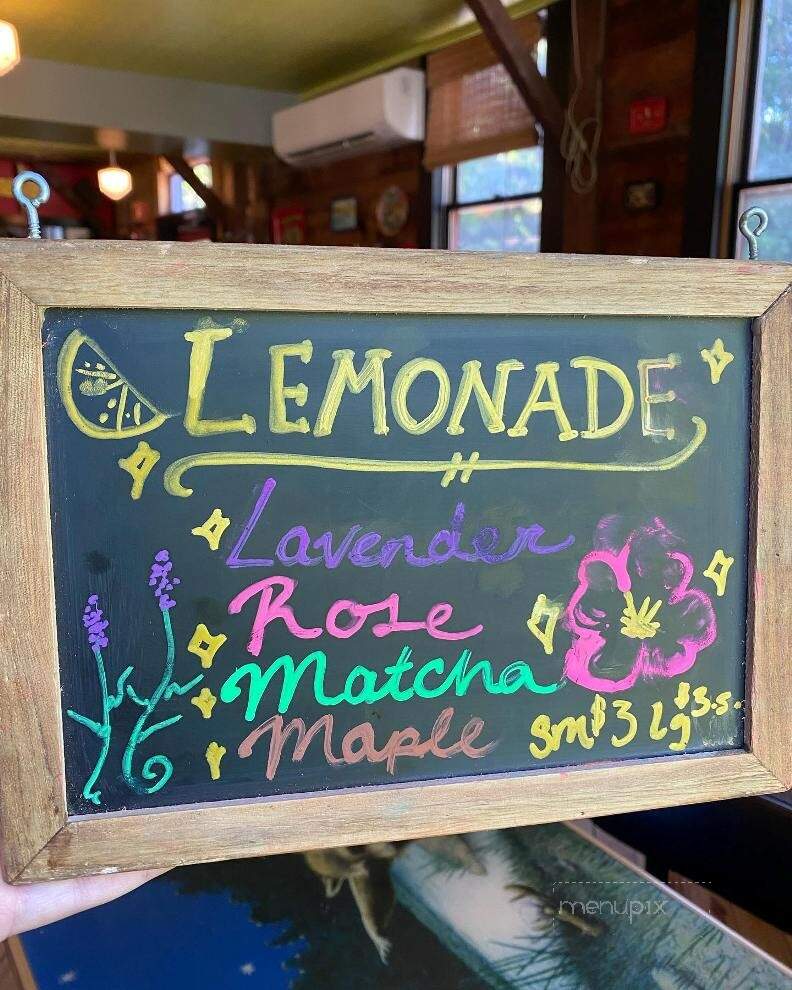 LEMONADE
Lavender
Rose
Matcha
Maple
sm $3 lg $3.5.
menupix